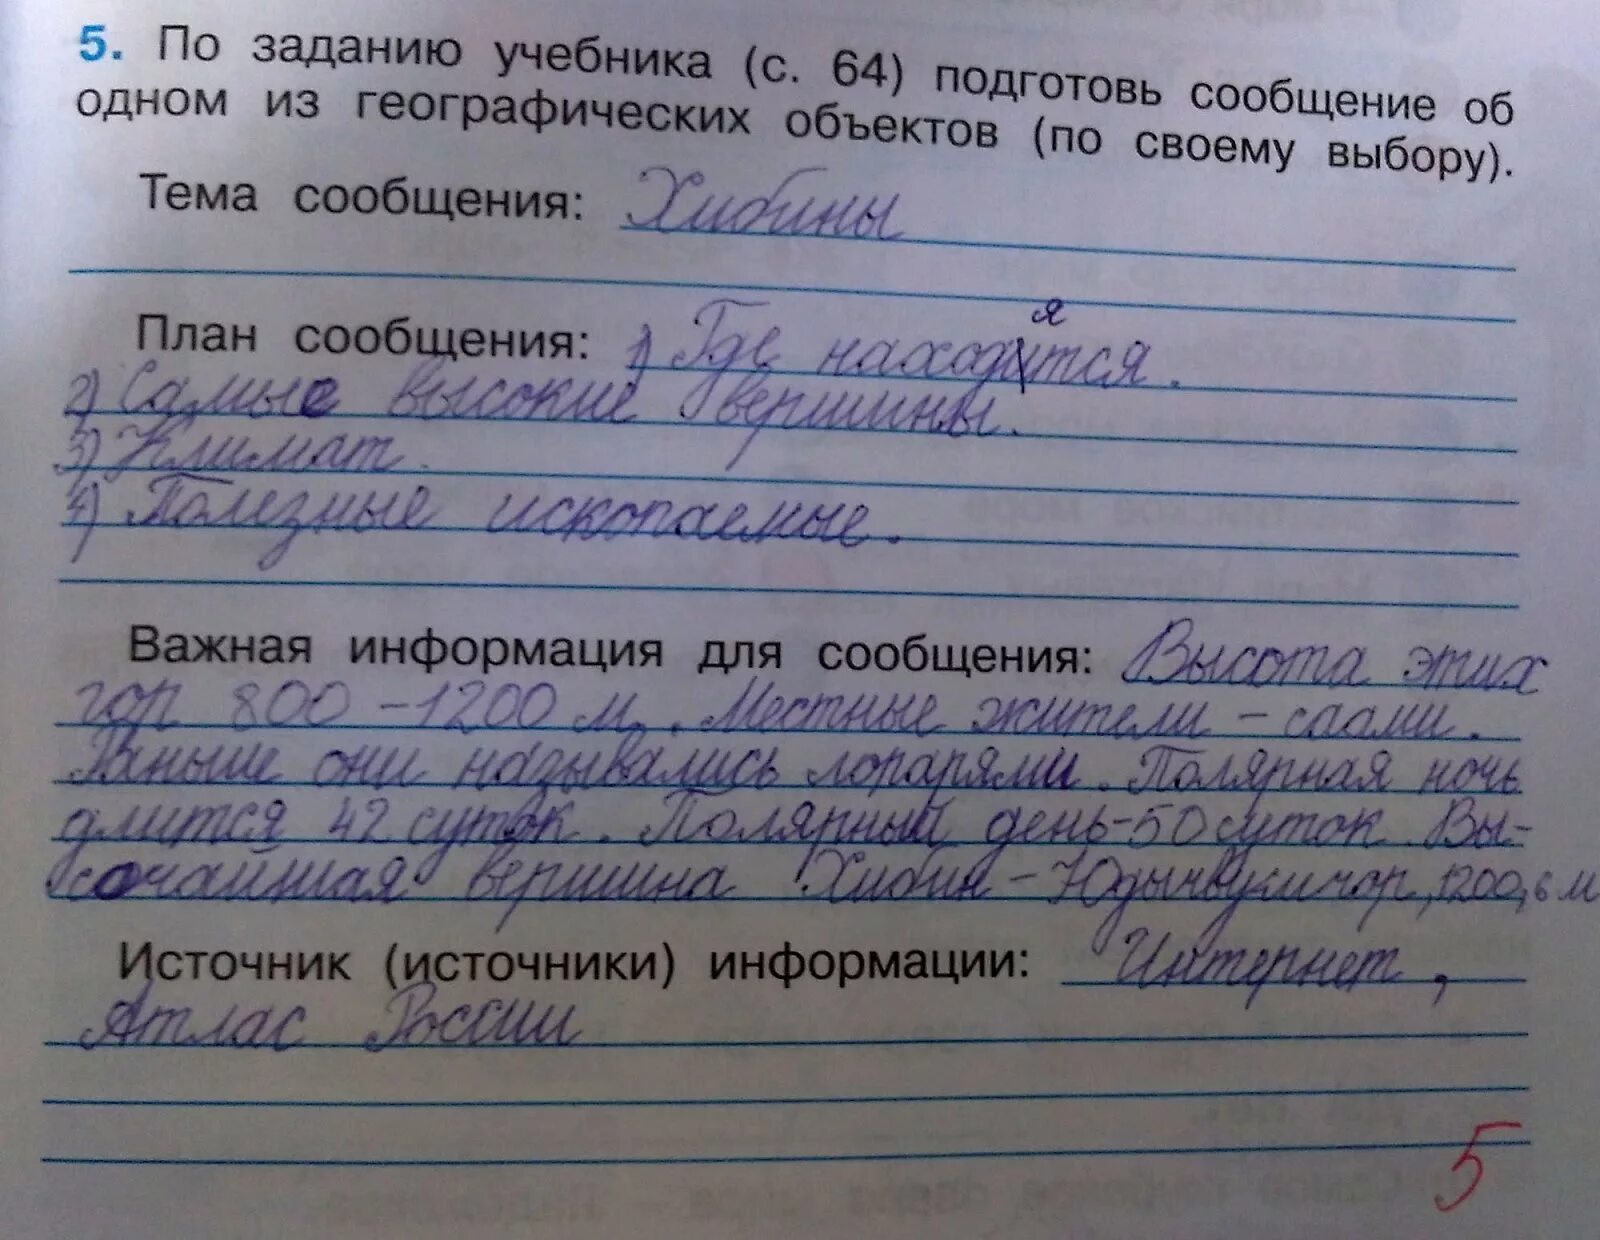 5. По заданию учебника (с. 64) подготовь сообщение об
одном из географических объектов (по своему выбору).
Тема сообщения: Хибины
План сообщения: 1) Где находятся.
2) Самые высокие вершины.
3) Климат.
4) Полезные ископаемые.
Важная информация для сообщения: Высота этих
гор 800-1200 м. Местные жители - саами.
Раньше они назывались лопарями. Полярная ночь
длится 42 суток. Полярный день-50 суток. Вы-
сочайшая вершина Хибин - Юдычвумчорр, 1200,6 м
Источник (источники) информации: Интернет,
Атлас России
5